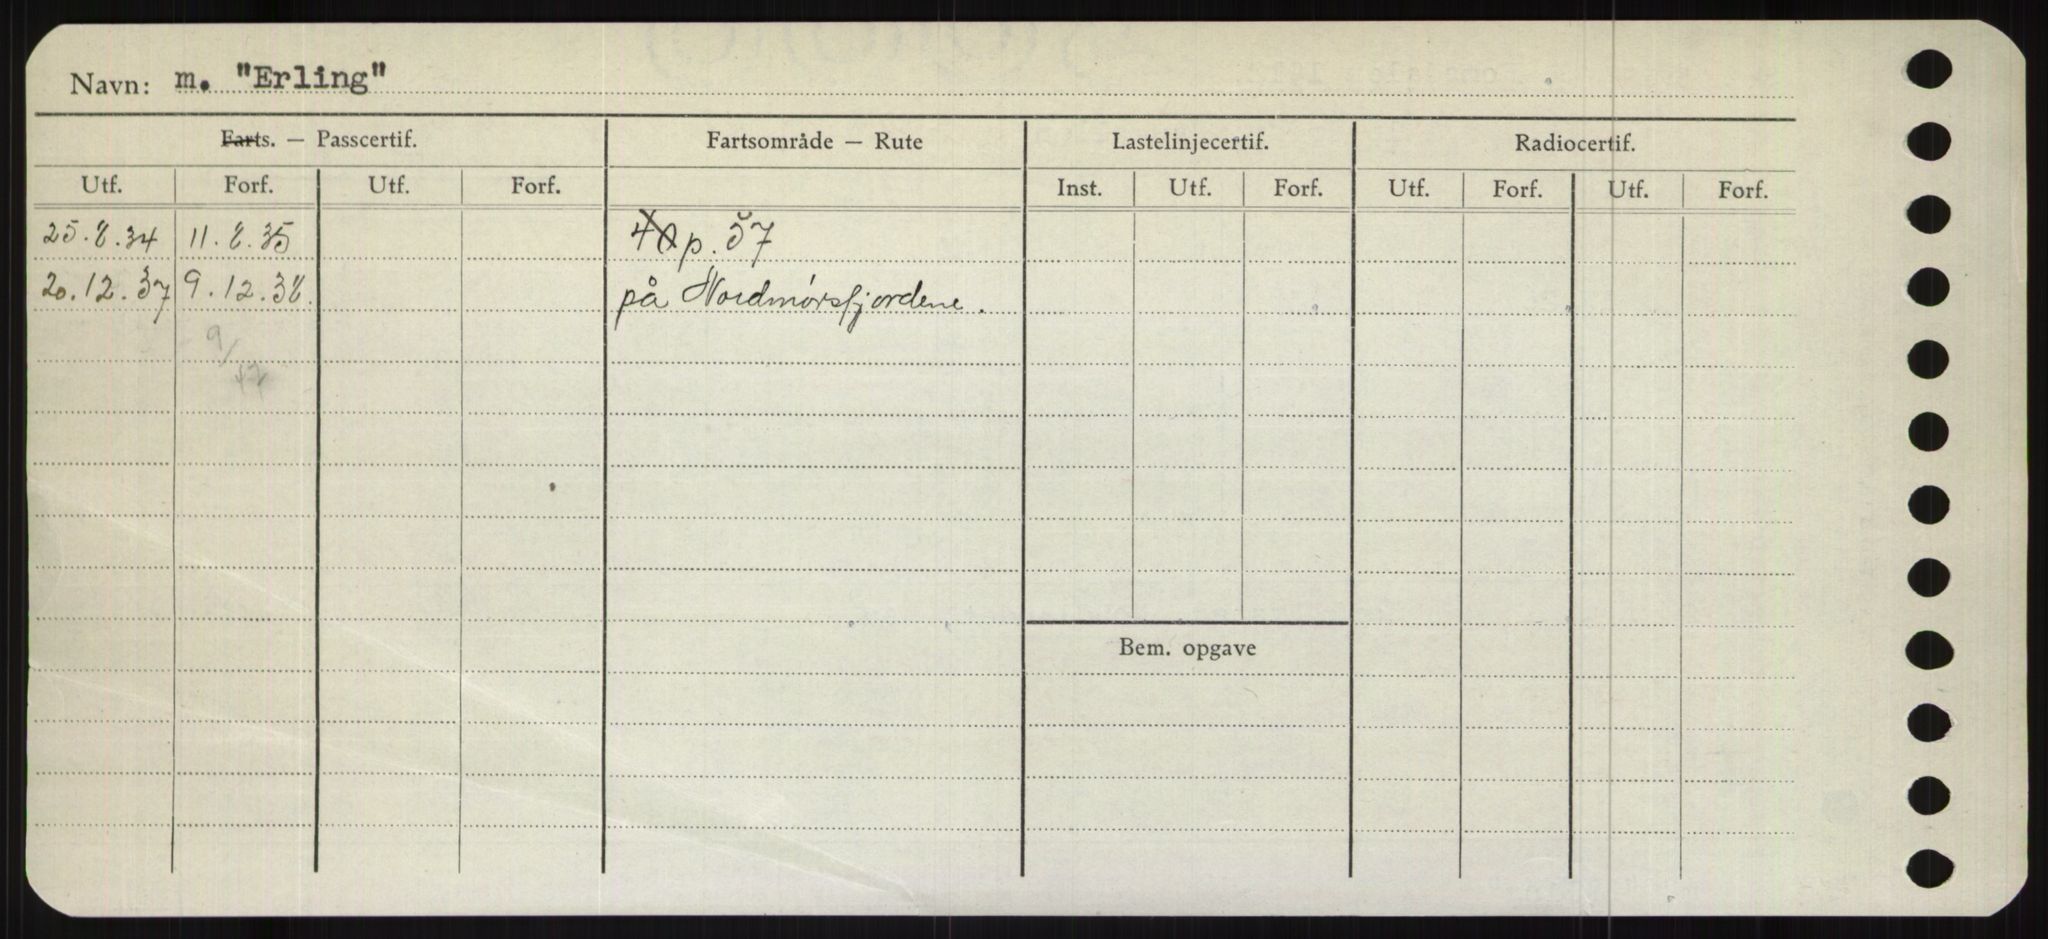 Navn: m. "Erling"
Farts. — Passcertif. Fartsområde — Rute Lastelinjecertif. Radiocertif.
Utf. Forf. Utf. Forf. Inst. Utf. Forf. Utf. Forf. Utf. Forf.
25.8.34 11.8.35 40 p. 57
20.12.37 9.12.38. på Nordmørsfjordene.
9/
12
Bem. opgave